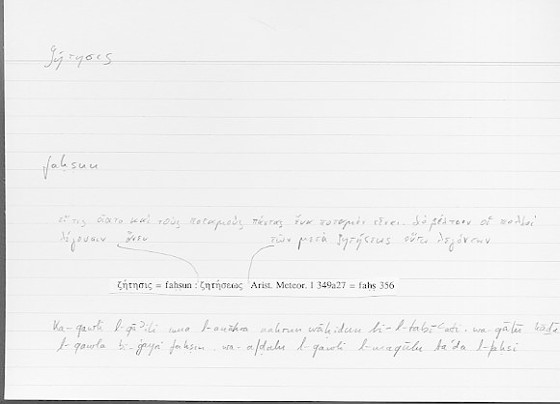 ζήτησις
faḥṣun
εἴ τις ᾠετο καὶ τοὺς ποταμοὺς πάντας ἕνα ποταμὸν εἶναι. διὸ βέλτιον οἱ πολλοὶ
λέγουσιν ἄνευ τῶν μετὰ ζητήσεως οὕτω λεγόντων
ζήτησις = fahsun : ζητήσεως Arist. Meteor. I 349a27 = faḥṣ 356
ka-qawli l-qāʾili inna l-anhāra nahrun wāḥidun bi-l-ṭabīʿati. wa-qāʾilu hāḏā
l-qawla bi-ġayri faḥṣin wa-afḍalu l-qawli l-maqūlu baʿda l-faḥṣi